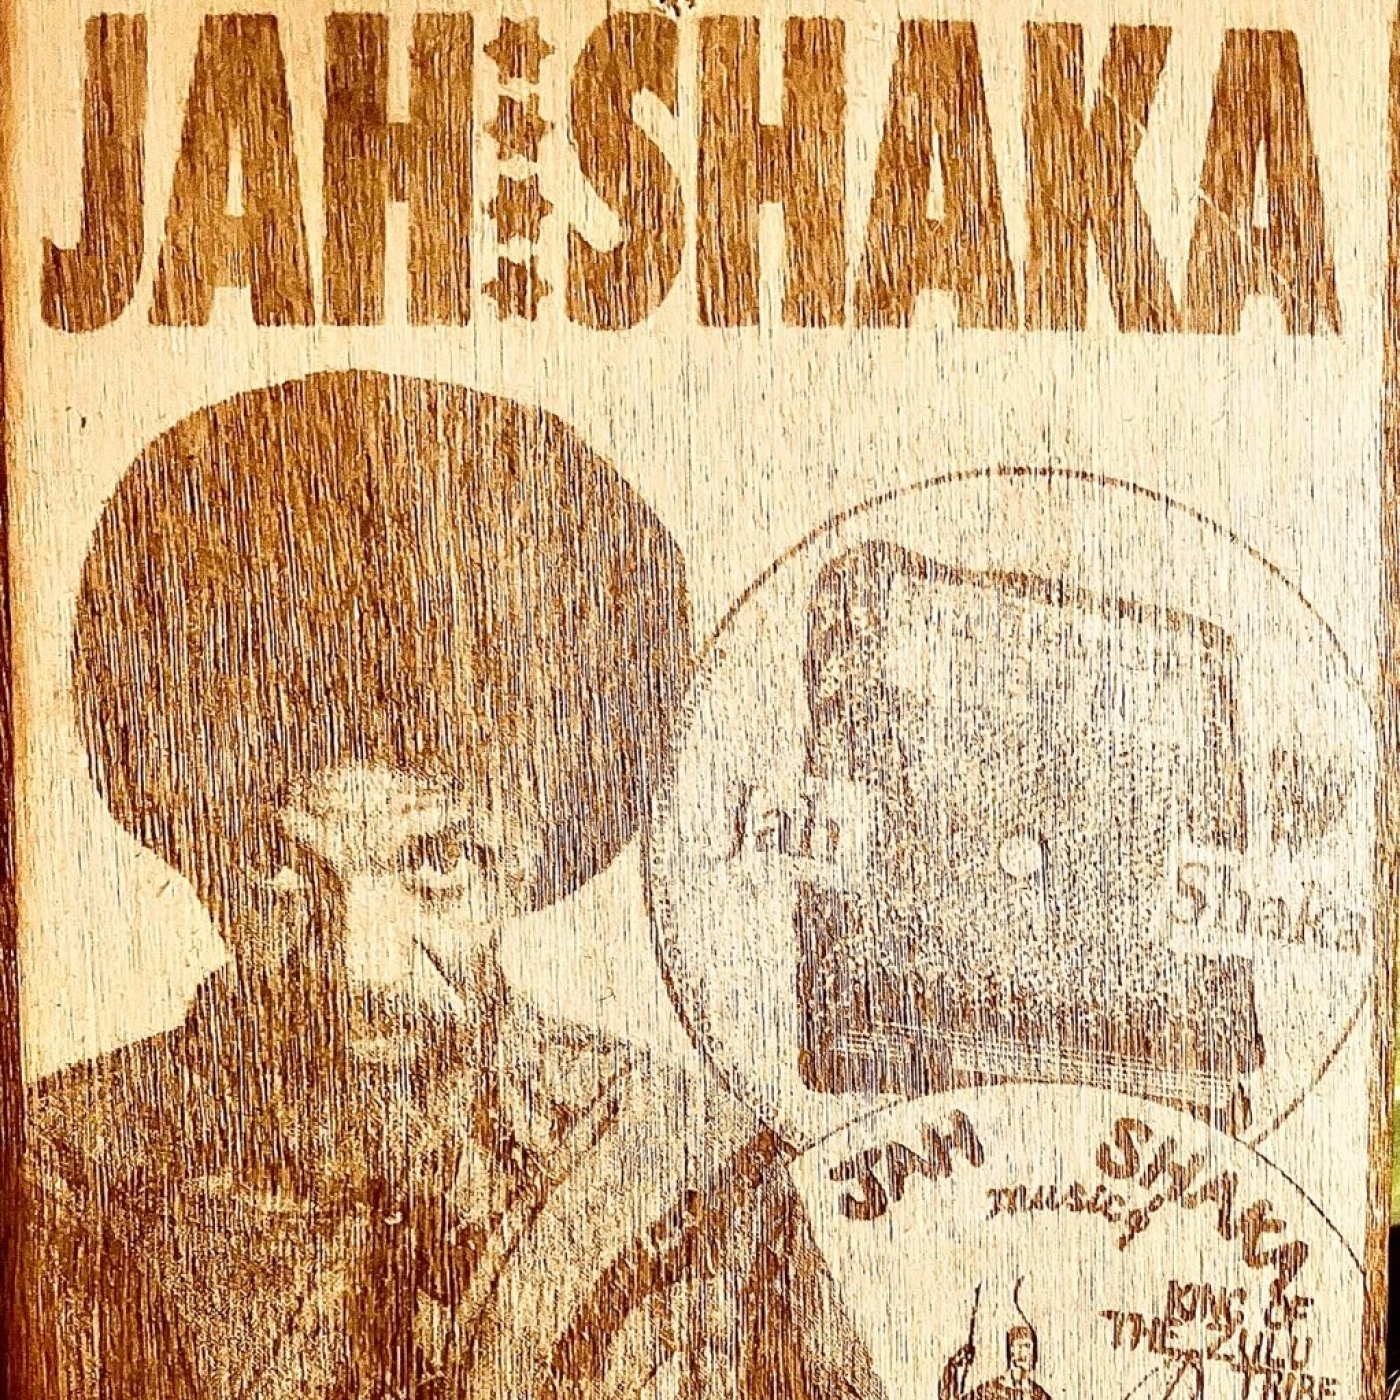 JAH SHAKA
Jah
Shaka
JAH SHAKA
music
KING OF
THE ZULU
TRIBE